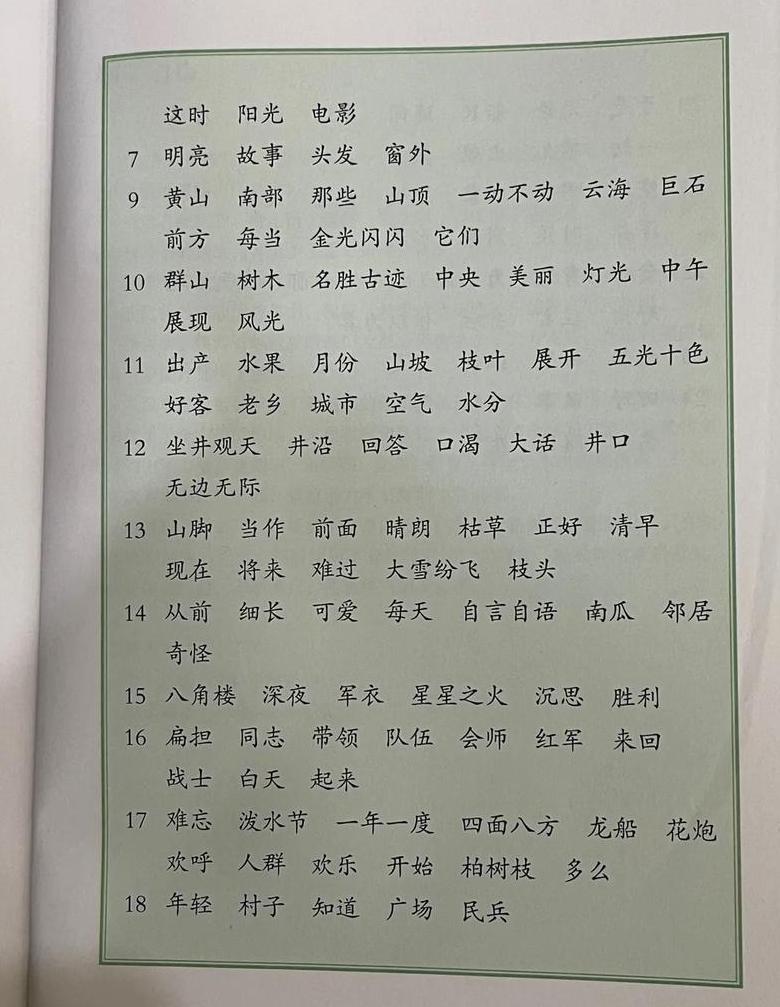 这时 阳光 电影
7 明亮 故事 头发 窗外
9 黄山 南部 那些 山顶 一动不动 云海 巨石
前方 每当 金光闪闪 它们
10 群山 树木 名胜古迹 中央 美丽 灯光 中午
展现 风光
11 出产 水果 月份 山坡 枝叶 展开 五光十色
好客 老乡 城市 空气 水分
12 坐井观天 井沿 回答 口渴 大话 井口
无边无际
13 山脚 当作 前面 晴朗 枯草 正好 清早
现在 将来 难过 大雪纷飞 枝头
14 从前 细长 可爱 每天 自言自语 南瓜 邻居
奇怪
15 八角楼 深夜 军衣 星星之火 沉思 胜利
16 扁担 同志 带领 队伍 会师 红军 来回
战士 白天 起来
17 难忘 泼水节 一年一度 四面八方 龙船 花炮
欢呼 人群 欢乐 开始 柏树枝 多么
18 年轻 村子 知道 广场 民兵